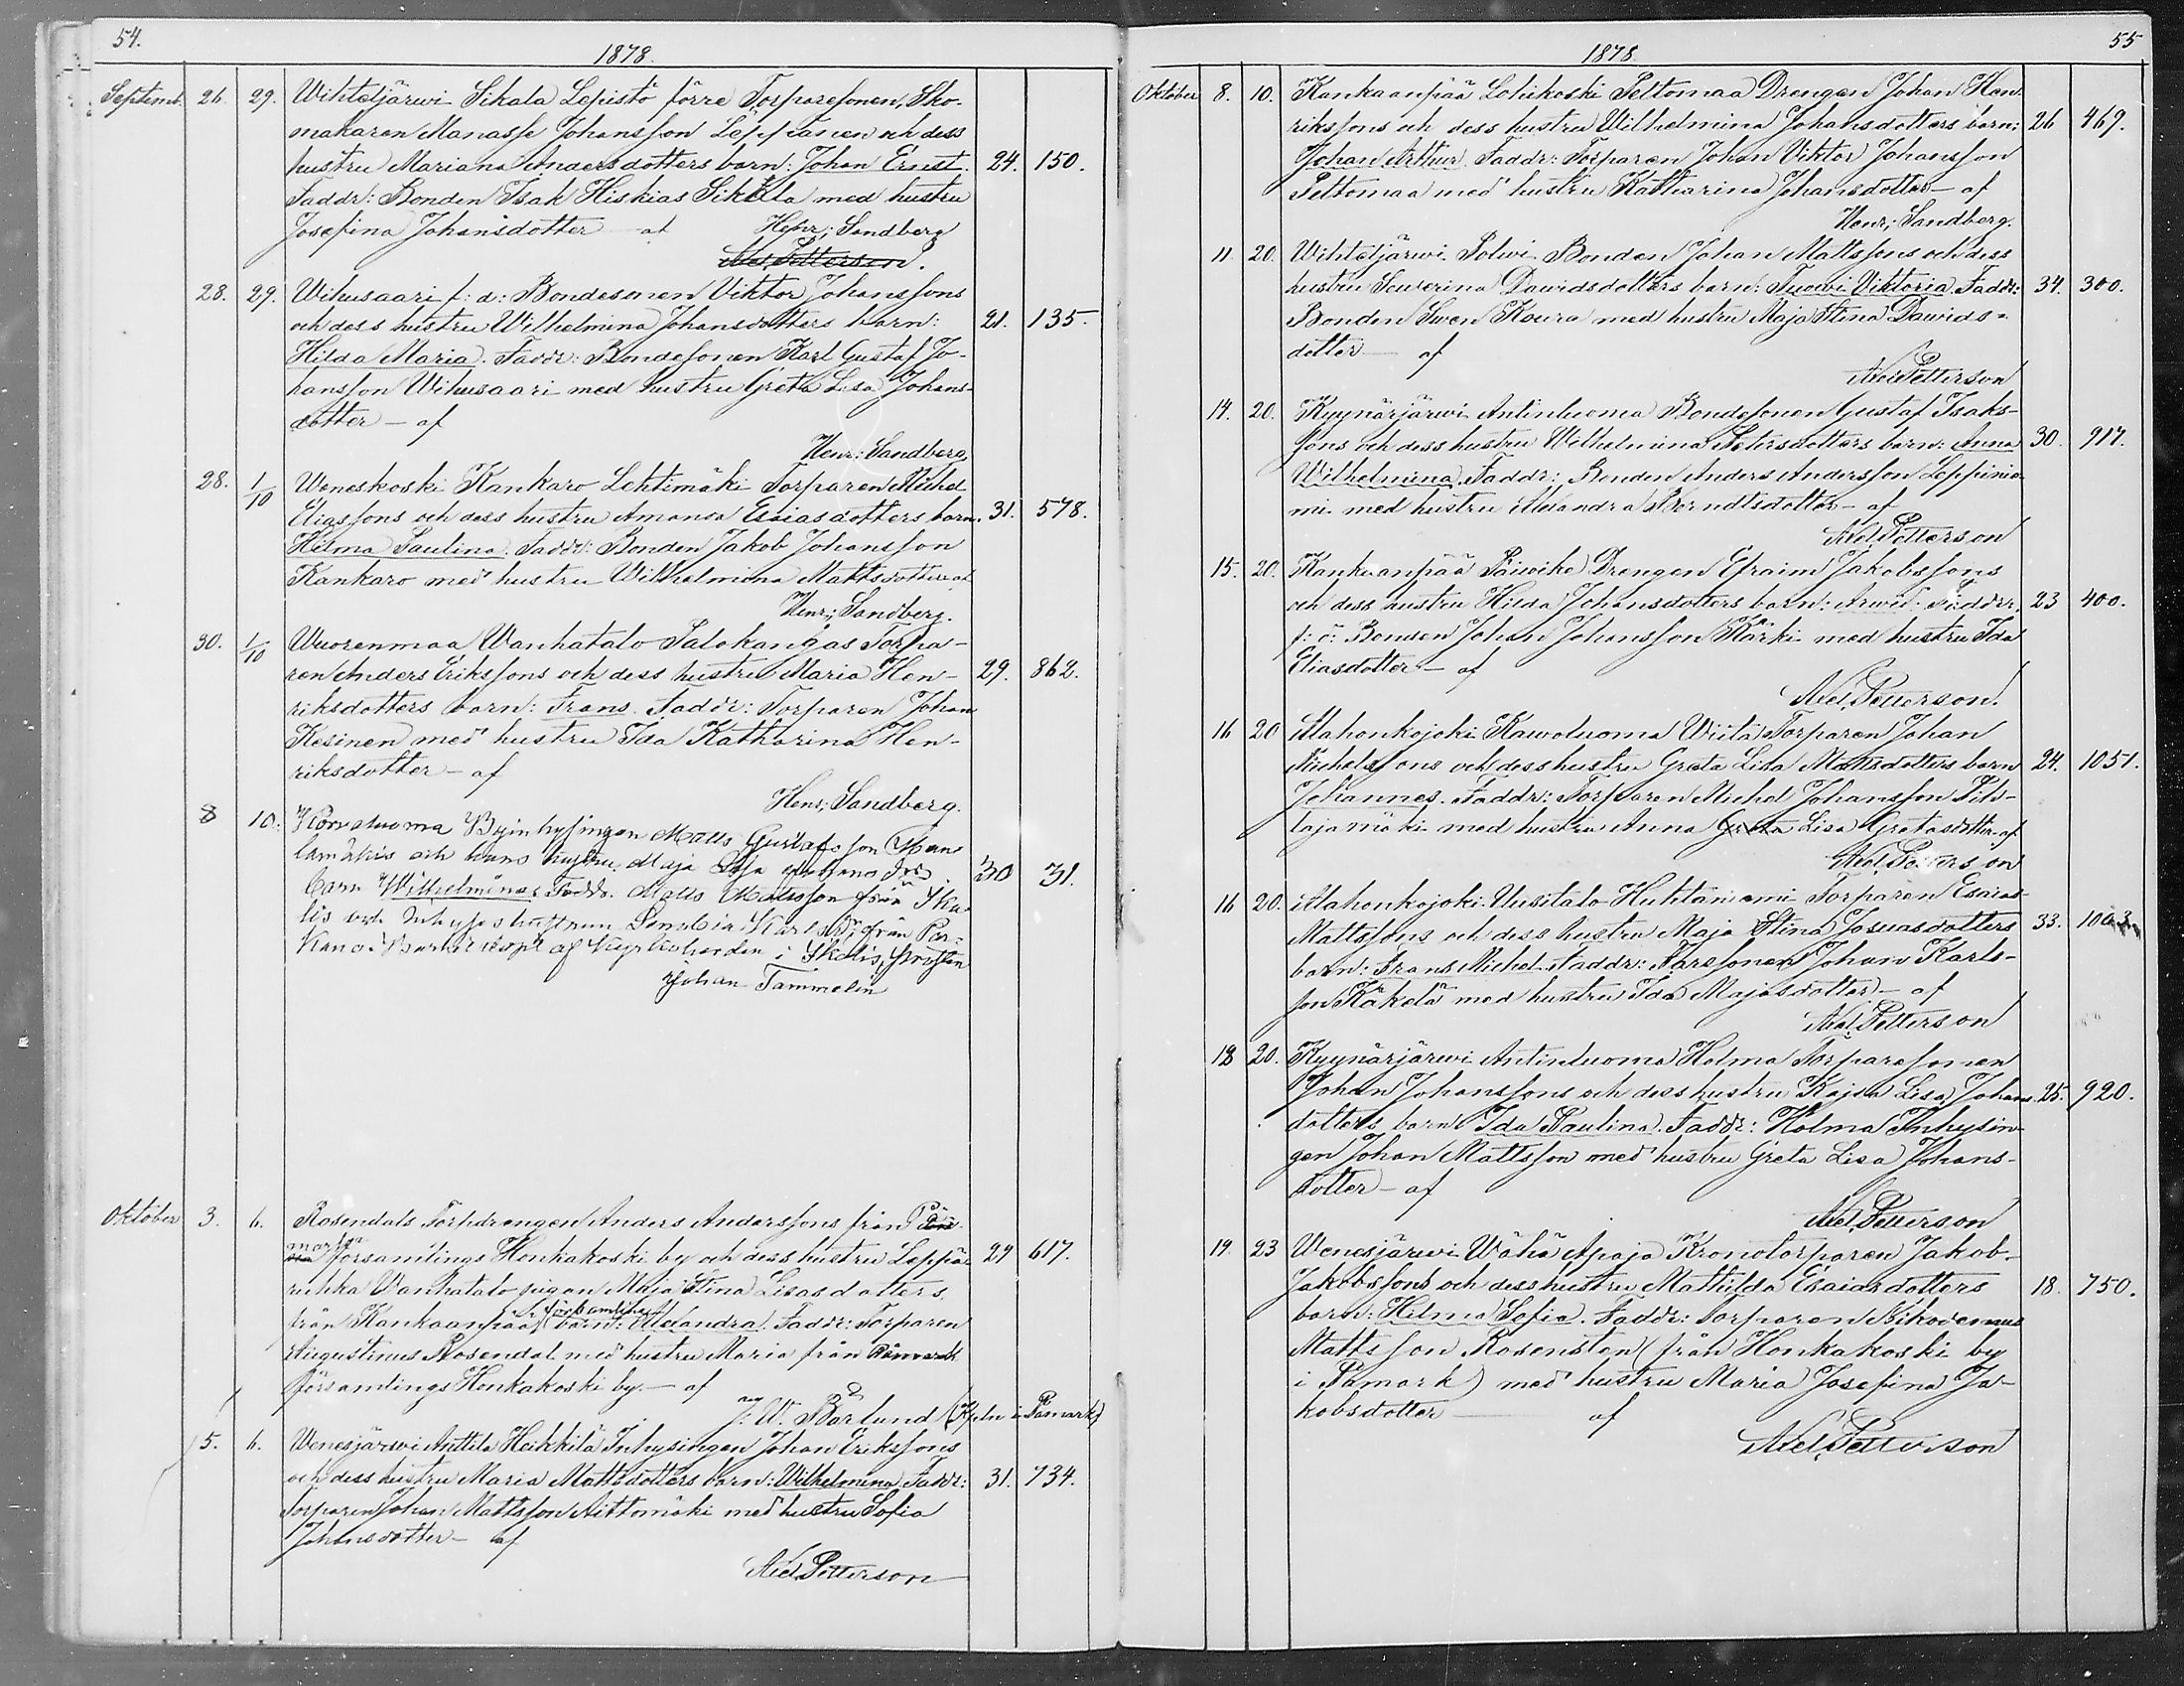 54.
1878.
Septemb. 26. 29. Wihteljärwi Sikala Lepistö förre Torparesonen, Sko-
makaren Manasse Johansson Leppänen och dess
hustru Mariana Andersdotters barn: Johan Ernst. 24. 150.
Faddr: Bonden Isak Hiskias Sikala med hustru
Josefina Johansdotter — af Henr: Sandberg
Axel Petterson.
28. 29. Wihusaari f: d: Bondesonen Viktor Johanssons
och dess hustru Wilhelmina Johansdotters barn: 21. 135.
Hilda Maria. Faddr: Bondesonen Karl Gustaf Jo-
hansson Wihusaari med hustru Greta Lisa Johans-
dotter — af
Henr: Sandberg.
28. 1/10 Weneskoski Kankaro Lehtimäki Torparen Michel
Eliassons och dess hustru Amanda Esaiasdotters barn. 31. 578.
Hilma Paulina. Faddr: Bonden Jakob Johansson
Kankaro med hustru Wilhelmina Mattsdotter af
Henr: Sandberg.
30. 1/10 Wuorenmaa Wanhatalo Salokangas Torpa-
ren Anders Erikssons och dess hustru Maria Hen- 29. 862.
riksdotters barn: Frans. Faddr: Torparen Johan
Kesinen med hustru Ida Katharina Hen-
riksdotter — af
Henr: Sandberg.
8 10. Korvaluoma Byinhysingen Matts Gustafsson
och hans hustru Maja 30 31.
barn Wilhelmina. Faddr. Matts Mattsson från Ika-
lis och Inhyses hustrun Karlsdr från Par-
kano. af i Ikalis, Prosten
Johan Tammelin
Oktober 3. 6. Rosendals Torpdrengen Anders Anderssons från På
mark församlings Honkakoski by och dess hustru Leppä- 29 617.
ruhka Vanhatalo pigan Maja Stina Lisasdotters
från Kankaanpää församling barn: Alexandra. Faddr: Torparen
Augustinus Rosendal med hustru Maria från Påmark
församlings Honkakoski by. — af
J: W. Barlund (Kpln i Påmark)
5. 6. Wenesjärwi Anttila Heikkilä Inhysingen Johan Erikssons
och dess hustru Maria Mattsdotters barn: Wilhelmina Faddr: 31. 734.
Torparen Johan Mattsson Aittomäki med hustru Sofia
Johansdotter — af
Axel Petterson
55
1878.
Oktober 8. 10. Kankaanpää Lohikoski Peltomaa Drengen Johan Hen-
rikssons och dess hustru Wilhelmina Johansdotters barn: 26 469.
Johan Arthur. Faddr: Torparen Johan Viktor Johansson
Peltomaa med hustru Katharina Johansdotter — af
Henr: Sandberg.
11. 20. Wihteljärwi Polwi Bonden Johan Mattssons och dess
hustru Seuverina Dawidsdotters barn: Tuowi Viktoria. Faddr: 34. 300.
Bonden Swen Koura med hustru Maja Stina Dawids-
dotter — af
Axel Petterson
14. 20. Kyynärjärwi Antinluoma Bondesonen Gustaf Isaks-
sons och dess hustru Wilhelmina Petersdotters barn: Anna 30. 917.
Wilhelmina. Faddr: Bonden Anders Andersson Leppinie-
mi med hustru Alexandra Berndtsdotter — af
Axel Petterson
15. 20. Kankaanpää Päiwike Drengen Efraim Jakobssons
och dess hustru Hilda Johansdotters barn: Arwid: Faddr: 23 400.
f: d: Bonden Johan Johansson Kärki med hustru Ida
Eliasdotter — af
Axel Petterson.
16 20 Ala honkojoki Kawoluoma Wiitä Torparen Johan
Michelssons och dess hustru Greta Lisa Mattsdotters barn 24. 1051.
Johannes. Faddr: Torparen Michel Johansson Pih-
lajamäki med hustru Anna Greta Lisa Gretasdotter af
Axel Petterson
16 20. Alahonkojoki Uusitalo Huhtaniemi Torparen Esaias
Mattssons och dess hustru Maja Stina Josuasdotters 33. 1003.
barn: Frans Michel. Faddr: Torparesonen Johan Karls-
son Käkelä med hustru Ida Majasdotter — af
Axel Petterson
18 20. Kyynärjärwi Antinluoma Holma Torparesonen
Johan Johanssons och dess hustru Kajsa Lisa Johans- 25. 920.
dotters barn Ida Paulina. Faddr: Holma Inhysin-
gen Johan Mattsson med hustru Greta Lisa Johans-
dotter — af
Axel Petterson
19. 23 Wenesjärwi Wähä Apaja Kronotorparen Jakob
Jakobssons och dess hustru Mathilda Esaiasdotters 18. 750.
barn: Hilma Sofia. Faddr: Torparen Nikodemus
Mattsson Rosensten (från Honkakoski by
i Påmark) med hustru Maria Josefina Ja-
kobsdotter — af
Axel Petterson